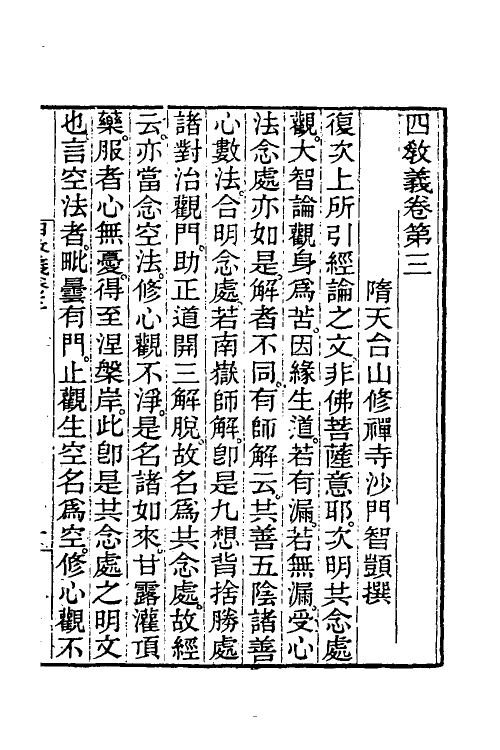 四教義卷第三
隋天台山修禪寺沙門智顗撰
復次上所引經論之文、非佛菩薩意耶。次明共念處
觀。大智論觀身為苦。因緣生道。若有漏。若無漏。受心
法念處亦如是。解者不同。有師解云。共善五陰諸善
心數法。合明念處。若南嶽師解。卽是九想背捨勝處
諸對治觀門。助正道開三解脫。故名為共念處。故經
云。亦當念空法。修心觀不淨。是名諸如來。甘露灌頂
藥。服者心無憂。得至涅槃岸。此卽是共念處之明文
也。言空法者。毗曇有門。止觀生空名為空。修心觀不